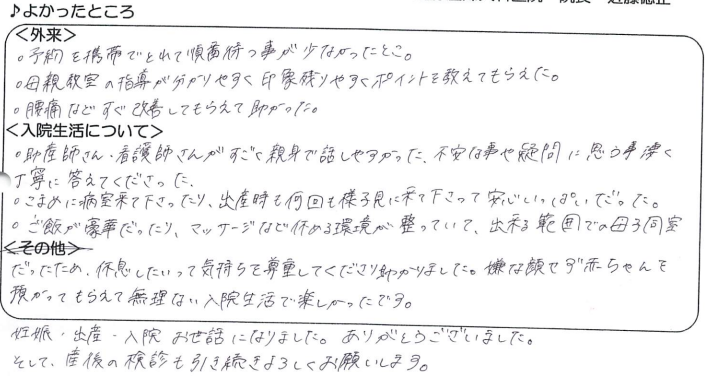 ♪よかったところ
<外来>
。予約を携帯でとれて順番待つ事が少なかったとこ。
。母親教室の指導が分かりやすく印象残りやすくポイントを教えてもらえた。
。腰痛などすぐ改善してもらえて助かった。
<入院生活について>
。助産師さん・看護師さんがすごく親身で話しやすかった、不安な事や疑問に思う事凄く
丁寧に答えてくださった。
。こまめに病室来て下さったり、出産時も何回も様子見に来て下さって安心いっぱいでした。
。ご飯が豪華だったり、マッサージなど休める環境が整っていて、出来る範囲での母子同室
<その他>
だったため、休息したいって気持ちを尊重してくださり助かりました。嫌な顔せず赤ちゃんを
預かってもらえて無理ない入院生活で楽しかったです。
妊娠・出産・入院 お世話になりました。ありがとうございました。
そして、産後の検診も引き続きよろしくお願いします。